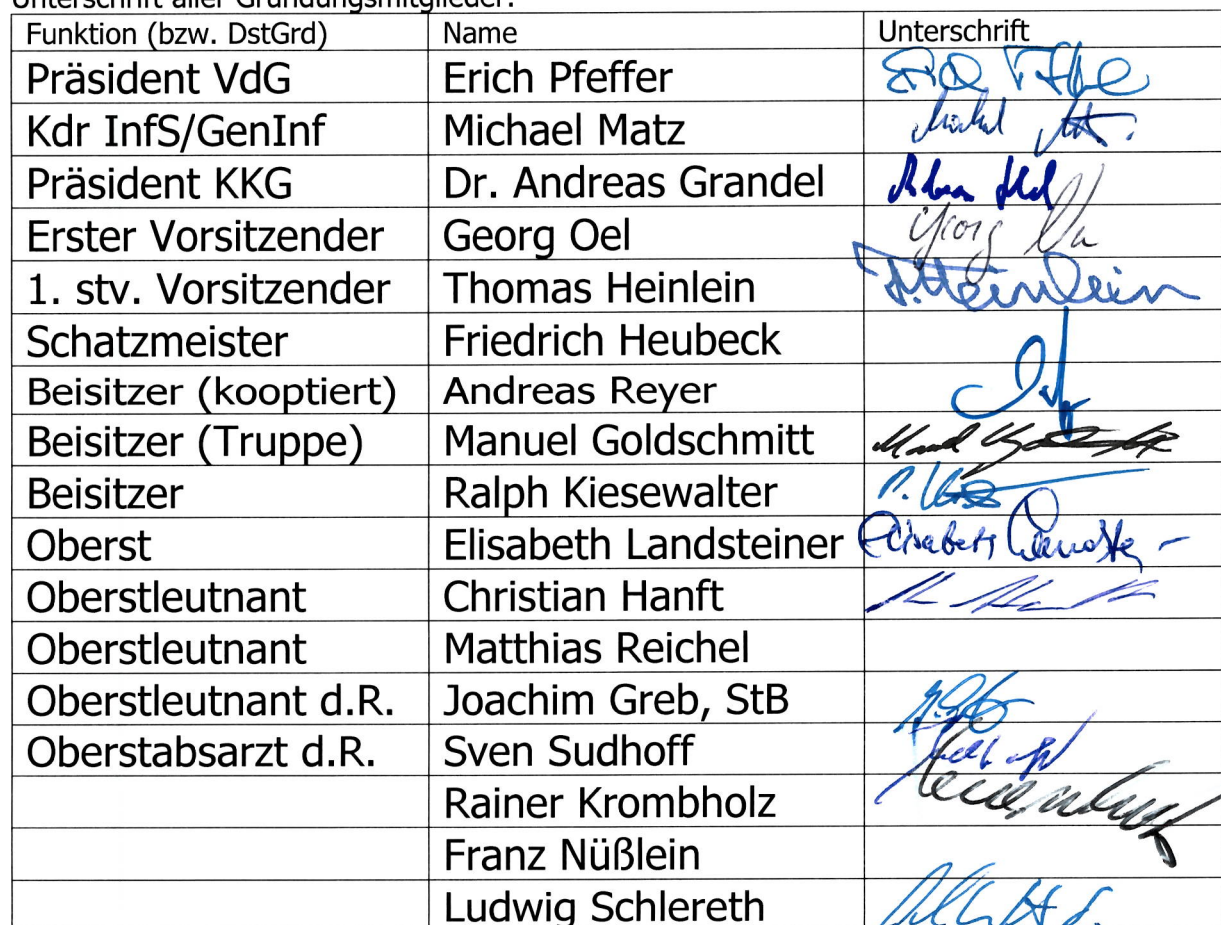 Unterschrift aller Gründungsmitglieder:
Funktion (bzw. DstGrd) Name Unterschrift
Präsident VdG Erich Pfeffer
Kdr InfS/GenInf Michael Matz
Präsident KKG Dr. Andreas Grandel
Erster Vorsitzender Georg Oel Georg
1. stv. Vorsitzender Thomas Heinlein T. Heinlein
Schatzmeister Friedrich Heubeck
Beisitzer (kooptiert) Andreas Reyer
Beisitzer (Truppe) Manuel Goldschmitt
Beisitzer Ralph Kiesewalter
Oberst Elisabeth Landsteiner Elisabeth
Oberstleutnant Christian Hanft
Oberstleutnant Matthias Reichel
Oberstleutnant d.R. Joachim Greb, StB
Oberstabsarzt d.R. Sven Sudhoff
Rainer Krombholz
Franz Nüßlein
Ludwig Schlereth